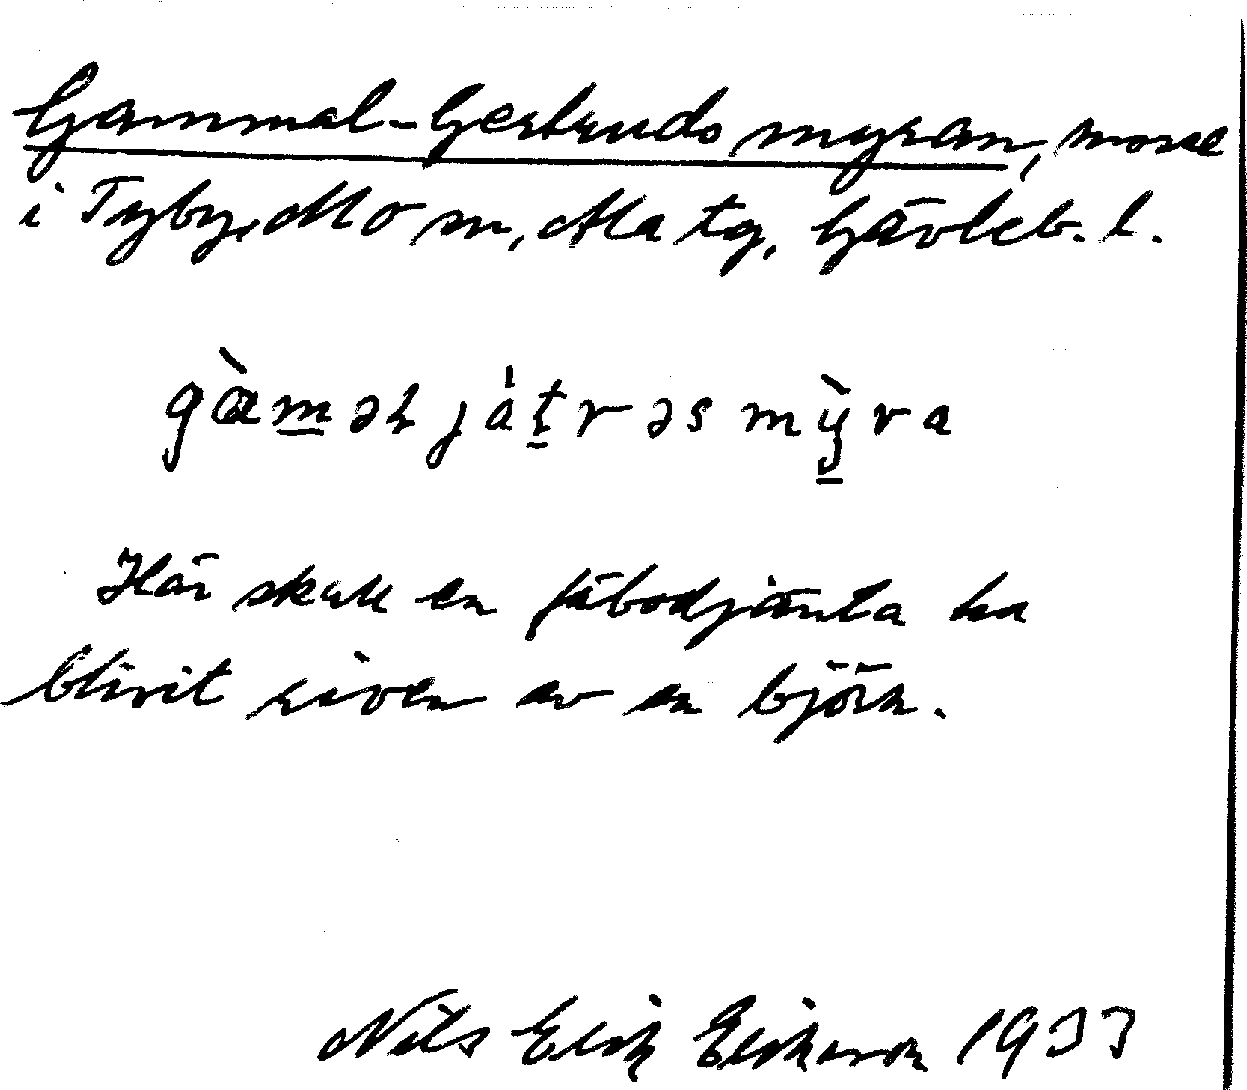 Gammal-Gertruds myran, mosse
i Tyby, Mo sn, Ala tg, Gävleb. l.
gàməl játrəs mỳra
Här skall en fäbodjänta ha
blivit riven av en björn.
Nils Erik Eriksson 1933